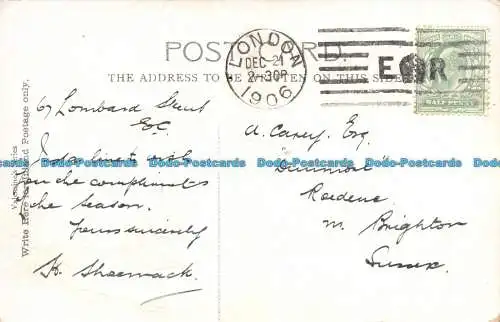 POSTCARD.
THE ADDRESS TO BE WRITTEN ON THIS SIDE
LONDON
DEC 21
2·30P
1906
E R
HALF PENNY
Write Here to Inland Postage only.
67 Lombard Street
E.C.
wish
the compliments
the Season.
Yours sincerely
H. Shoemack
A. Casey Esq.
"Dunmore"
Roedene
nr Brighton
Sussex
Dodo-Postcards Dodo-Postcards Dodo-Postcards Dodo-Postcards Dodo-Postcards